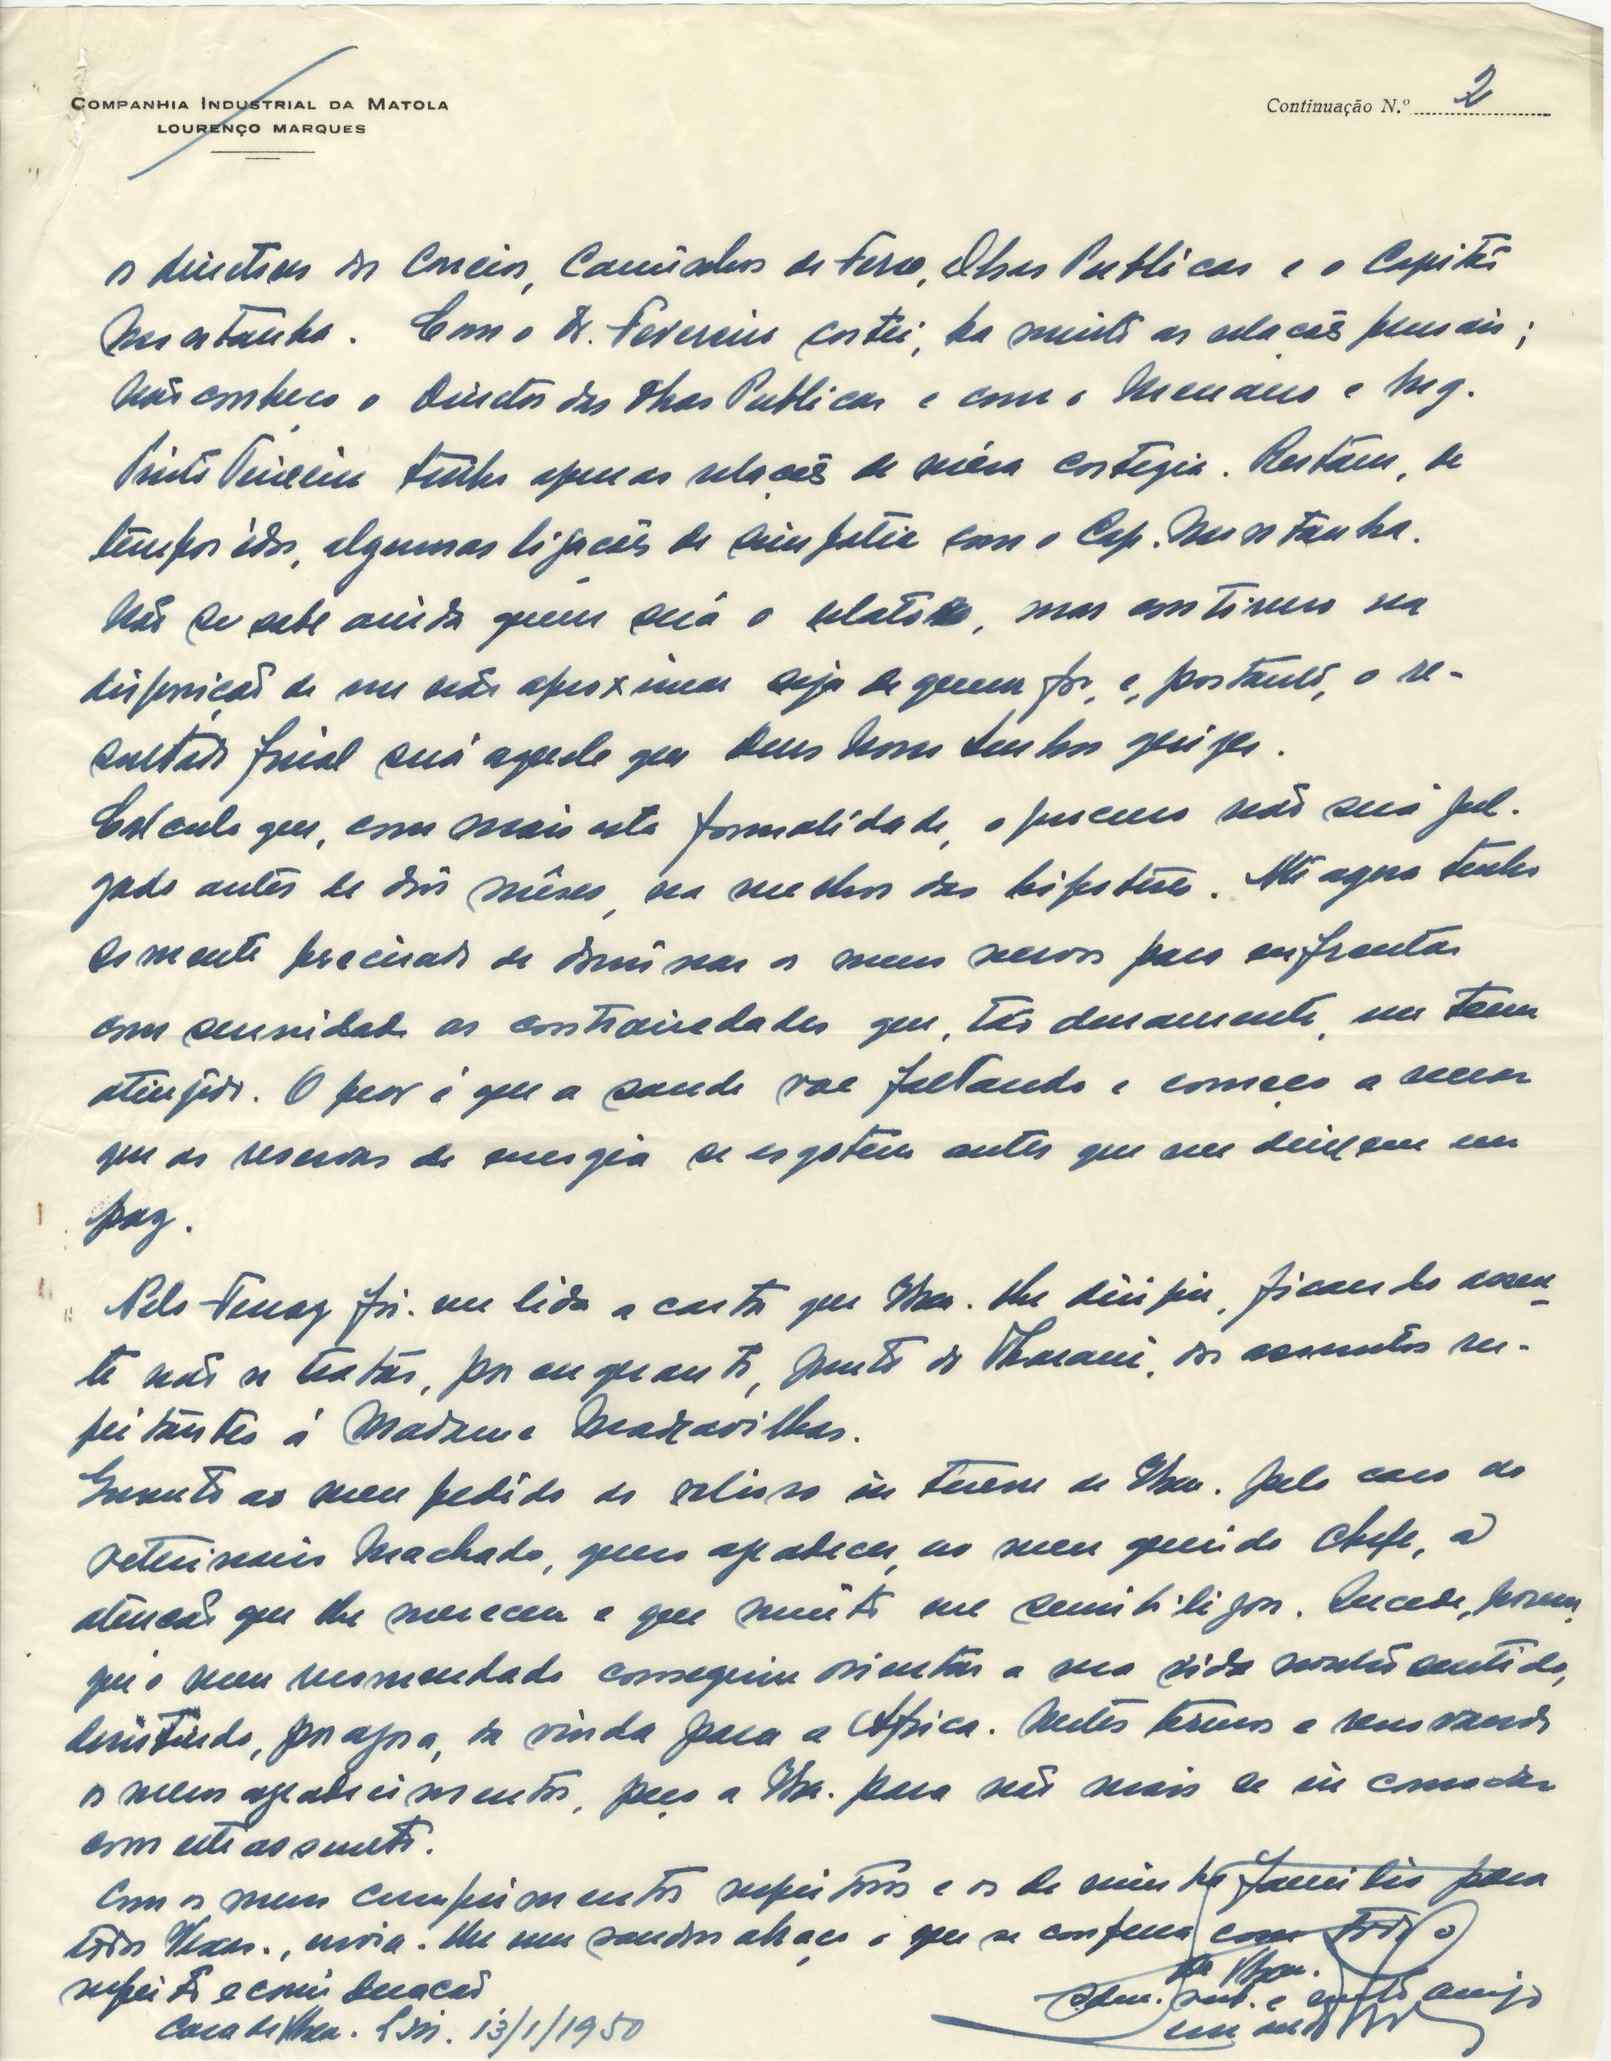 COMPANHIA INDUSTRIAL DA MATOLA
LOURENÇO MARQUES
Continuação N.º 2
os directores dos Correios, Caminhos de Ferro, Obras Publicas e o Capitão
Montanha. Com o Dr. Fevereiro cortei, ha muito as relações pessoais;
não conheço o Director das Obras Publicas e com o Menano e Eng.
Pinto Teixeira tenho apenas relações de méra cortezia. Restam, de
tempos idos, algumas ligações de simpatia com o Cap. Montanha.
Não se sabe ainda quem será o relator, mas continuo na
disposição de me não aproximar seja de quem fôr, e, portanto, o re-
sultado final será aquele que Deus Nosso Senhor quizer.
Calculo que, com mais esta formalidade, o processo não será jul-
gado antes de dois mêses, na melhor das hipoteses. Até agora tenho
somente precisado de dominar os meus nervos para enfrentar
com serenidade as contrariedades que, tão duramente, me teem
atingido. O peor é que a saude vae faltando e começo a recear
que as reservas de energia se esgotem antes que me deixem em
paz.
Pelo Ferraz foi-me lida a carta que VExa. lhe dirigiu, ficando assen-
te não se tratar, por enquanto, junto do Tharani, dos assuntos res-
peitantes á Madame Maravilhas.
Quanto ao meu pedido do valioso interesse de VExa. pelo caso do
veterinario Machado, quero agradecer, ao meu querido Chefe, a
atenção que lhe mereceu e que muito me sensibilizou. Sucede, porem,
que o meu recomendado conseguiu orientar a sua vida noutro sentido,
desistindo, por agora, da vinda para a Africa. Nestes termos e renovando
os meus agradecimentos, peço a VExa. para não mais se incomodar
com este assunto.
Com os meus cumprimentos respeitosos e os de minha familia para
todos VExas., envia-lhe um saudoso abraço o que se confessa com todo o
respeito e consideração
de VExa.
amigo
Casa de VExa. 13/1/1950